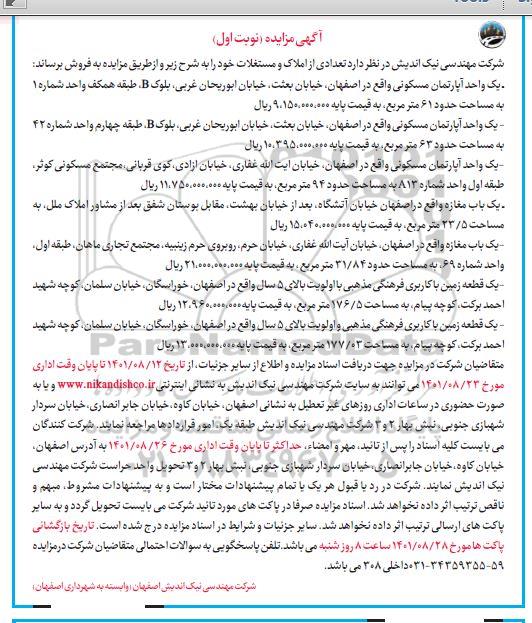 آگهی مزایده (نوبت اول)
شرکت مهندسی نیک اندیش در نظر دارد تعدادی از املاک و مستغلات خود را به شرح زیر و از طریق مزایده به فروش برساند:
- یک واحد آپارتمان مسکونی واقع در اصفهان، خیابان بعثت، خیابان ابوریحان غربی، بلوک B، طبقه همکف واحد شماره ۱
به مساحت حدود ۶۱ متر مربع، به قیمت پایه ۹،۱۵۰،۰۰۰،۰۰۰ ریال
- یک واحد آپارتمان مسکونی واقع در اصفهان، خیابان بعثت، خیابان ابوریحان غربی، بلوک B، طبقه چهارم واحد شماره ۴۲
به مساحت حدود ۶۳ متر مربع، به قیمت پایه ۱۰،۳۹۵،۰۰۰،۰۰۰ ریال
- یک واحد آپارتمان مسکونی واقع در اصفهان، خیابان ایت الله غفاری، خیابان ازادی، کوی قربانی، مجتمع مسکونی کوثر،
طبقه اول واحد شماره ۸۱۳ به مساحت حدود ۹۴ متر مربع، به قیمت پایه ۱۱،۷۵۰،۰۰۰،۰۰۰ ریال
- یک باب مغازه واقع در اصفهان خیابان آتشگاه، بعد از خیابان بهشت، مقابل بوستان شفق بعد از مشاور املاک ملل، به
مساحت ۲۳/۵ متر مربع، به قیمت پایه ۱۵،۰۴۰،۰۰۰،۰۰۰ ریال
- یک باب مغازه واقع در اصفهان، خیابان آیت الله غفاری، خیابان حرم، روبروی حرم زینبیه، مجتمع تجاری ماهان، طبقه اول،
واحد شماره ۶۹، به مساحت حدود ۳۱/۸۴ متر مربع، به قیمت پایه ۲۱،۰۰۰،۰۰۰،۰۰۰ ریال
- یک قطعه زمین با کاربری فرهنگی مذهبی با اولویت بالای ۵ سال واقع در اصفهان، خوراسگان، خیابان سلمان، کوچه شهید
احمد برکت، کوچه پیام، به مساحت ۱۷۶/۵ متر مربع، به قیمت پایه ۱۲،۹۶۰،۰۰۰،۰۰۰ ریال
- یک قطعه زمین با کاربری فرهنگی مذهبی و اولویت بالای ۵ سال واقع در اصفهان، خوراسگان، خیابان سلمان، کوچه شهید
احمد برکت، کوچه پیام، به مساحت ۱۷۷/۰۳ متر مربع، به قیمت پایه ۱۳،۰۰۰،۰۰۰،۰۰۰ ریال
متقاضیان شرکت در مزایده جهت دریافت اسناد مزایده و اطلاع از سایر جزئیات، از تاریخ ۱۴۰۱/۰۸/۱۲ تا پایان وقت اداری
مورخ ۱۴۰۱/۰۸/۲۳ می توانند به سایت شرکت مهندسی نیک اندیش به نشانی اینترنتی www.nikandishco.ir و یا به
صورت حضوری در ساعات اداری روزهای غیر تعطیل به نشانی اصفهان، خیابان کاوه، خیابان جابر انصاری، خیابان سردار
شهبازی جنوبی، نبش بهار ۲ و ۳ شرکت مهندسی نیک اندیش طبقه یک امور قراردادها مراجعه نمایند. شرکت کنندگان
می بایست کلیه اسناد را پس از تائید، مهر و امضاء، حداکثر تا پایان وقت اداری مورخ ۱۴۰۱/۰۸/۲۶ به آدرس اصفهان،
خیابان کاوه، خیابان جابرانصاری، خیابان سردار شهبازی جنوبی، نبش بهار ۲ و ۳ تحویل واحد حراست شرکت مهندسی
نیک اندیش نمایند. شرکت در رد یا قبول هر یک یا تمام پیشنهادات مختار است و به پیشنهادات مشروط، مبهم و
ناقص ترتیب اثر داده نخواهد شد. اسناد مزایده صرفا در پاکت های مورد تائید شرکت می بایست تحویل گردد و به سایر
پاکت های ارسالی ترتیب اثر داده نخواهد شد. سایر جزئیات و شرایط در اسناد مزایده درج شده است. تاریخ بازگشائی
پاکت ها مورخ ۱۴۰۱/۰۸/۲۸ ساعت ۸ روز شنبه می باشد. تلفن پاسخگویی به سوالات احتمالی متقاضیان شرکت در مزایده
۰۳۱-۳۴۳۵۹۳۵۵-۵۹ داخلی ۳۰۸ می باشد.
شرکت مهندسی نیک اندیش اصفهان (وابسته به شهرداری اصفهان)